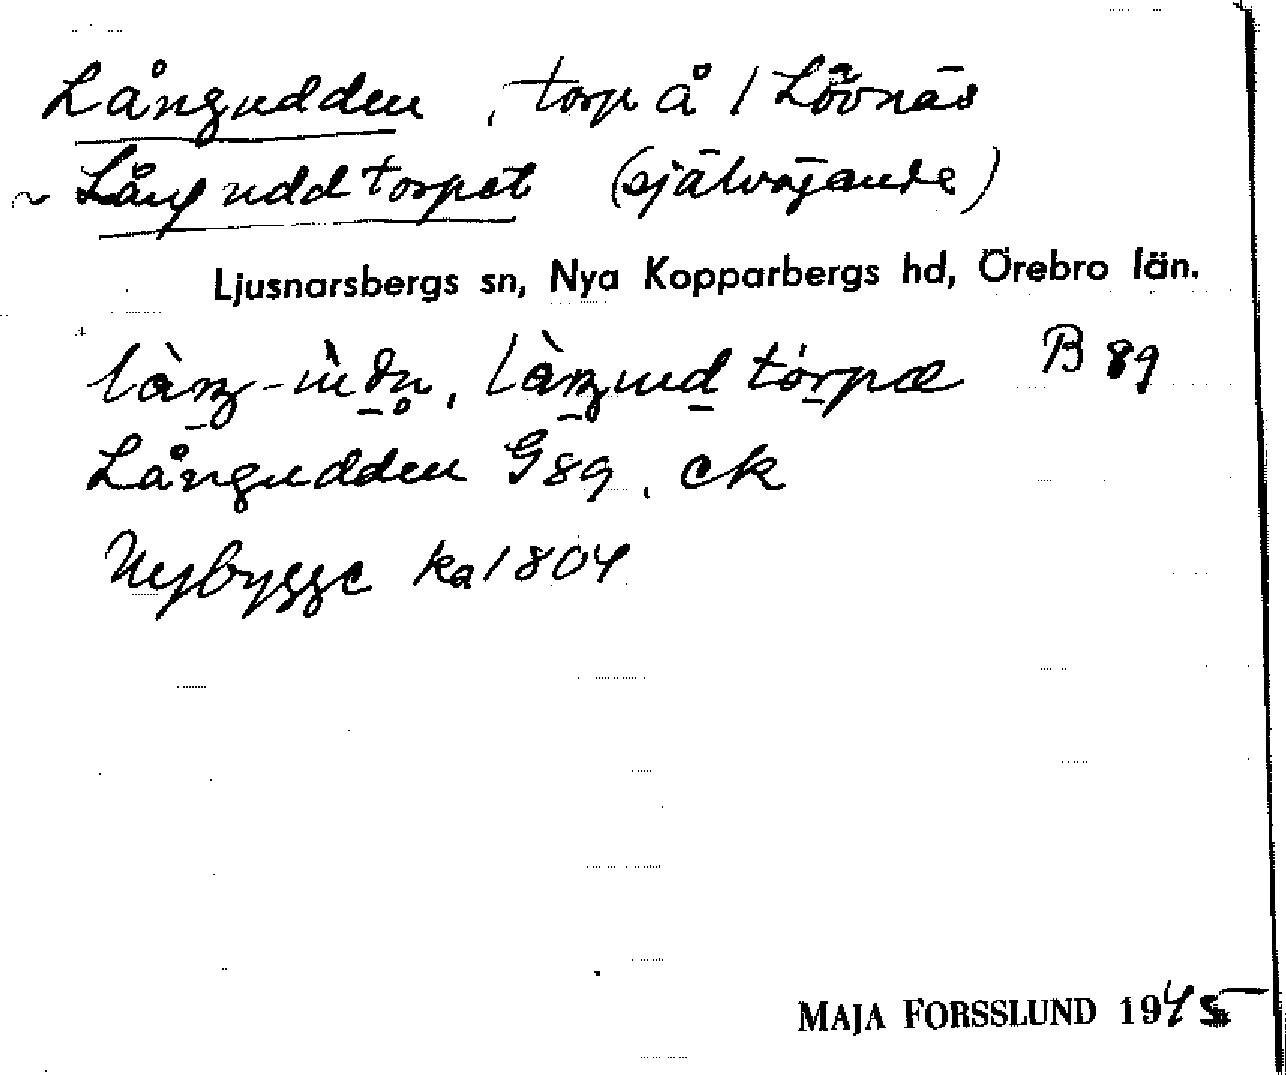 Långudden, torp å 1 Lövnäs
~ Långuddtorpet (självägande)
Ljusnarsbergs sn, Nya Kopparbergs hd, Örebro län.
B 89
Långudden G 89, ek
Nybygge ka 1804
MAJA FORSSLUND 1945